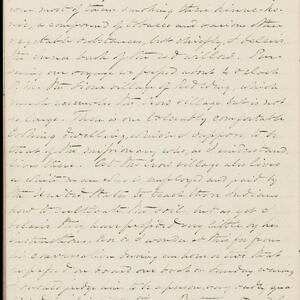 were most of them smoking their kinne-ke-
nic, a compound of tobacco and various other
vegetable substances, but chiefly, I believe,
the inner bark of the red willow. Pur-
suing our voyage we passed about 4 o'clock
P.M. the Sioux village of Red Wing, which
much resembles the Iowa village but is not
so large. There is one tolerably comfortable
looking dwelling, which I suppose is the
house of the missionary who, as I understand,
lives there. At the village also lives
a white man who is employed and paid by
the United States to teach the Indians
how to cultivate the soil, but as yet I
believe they have profited very little by his
instructions. Nor do I wonder at this for from
his conversation during an hour or two that
he passed on board our boat on Sunday evening,
I should judge him to be a person